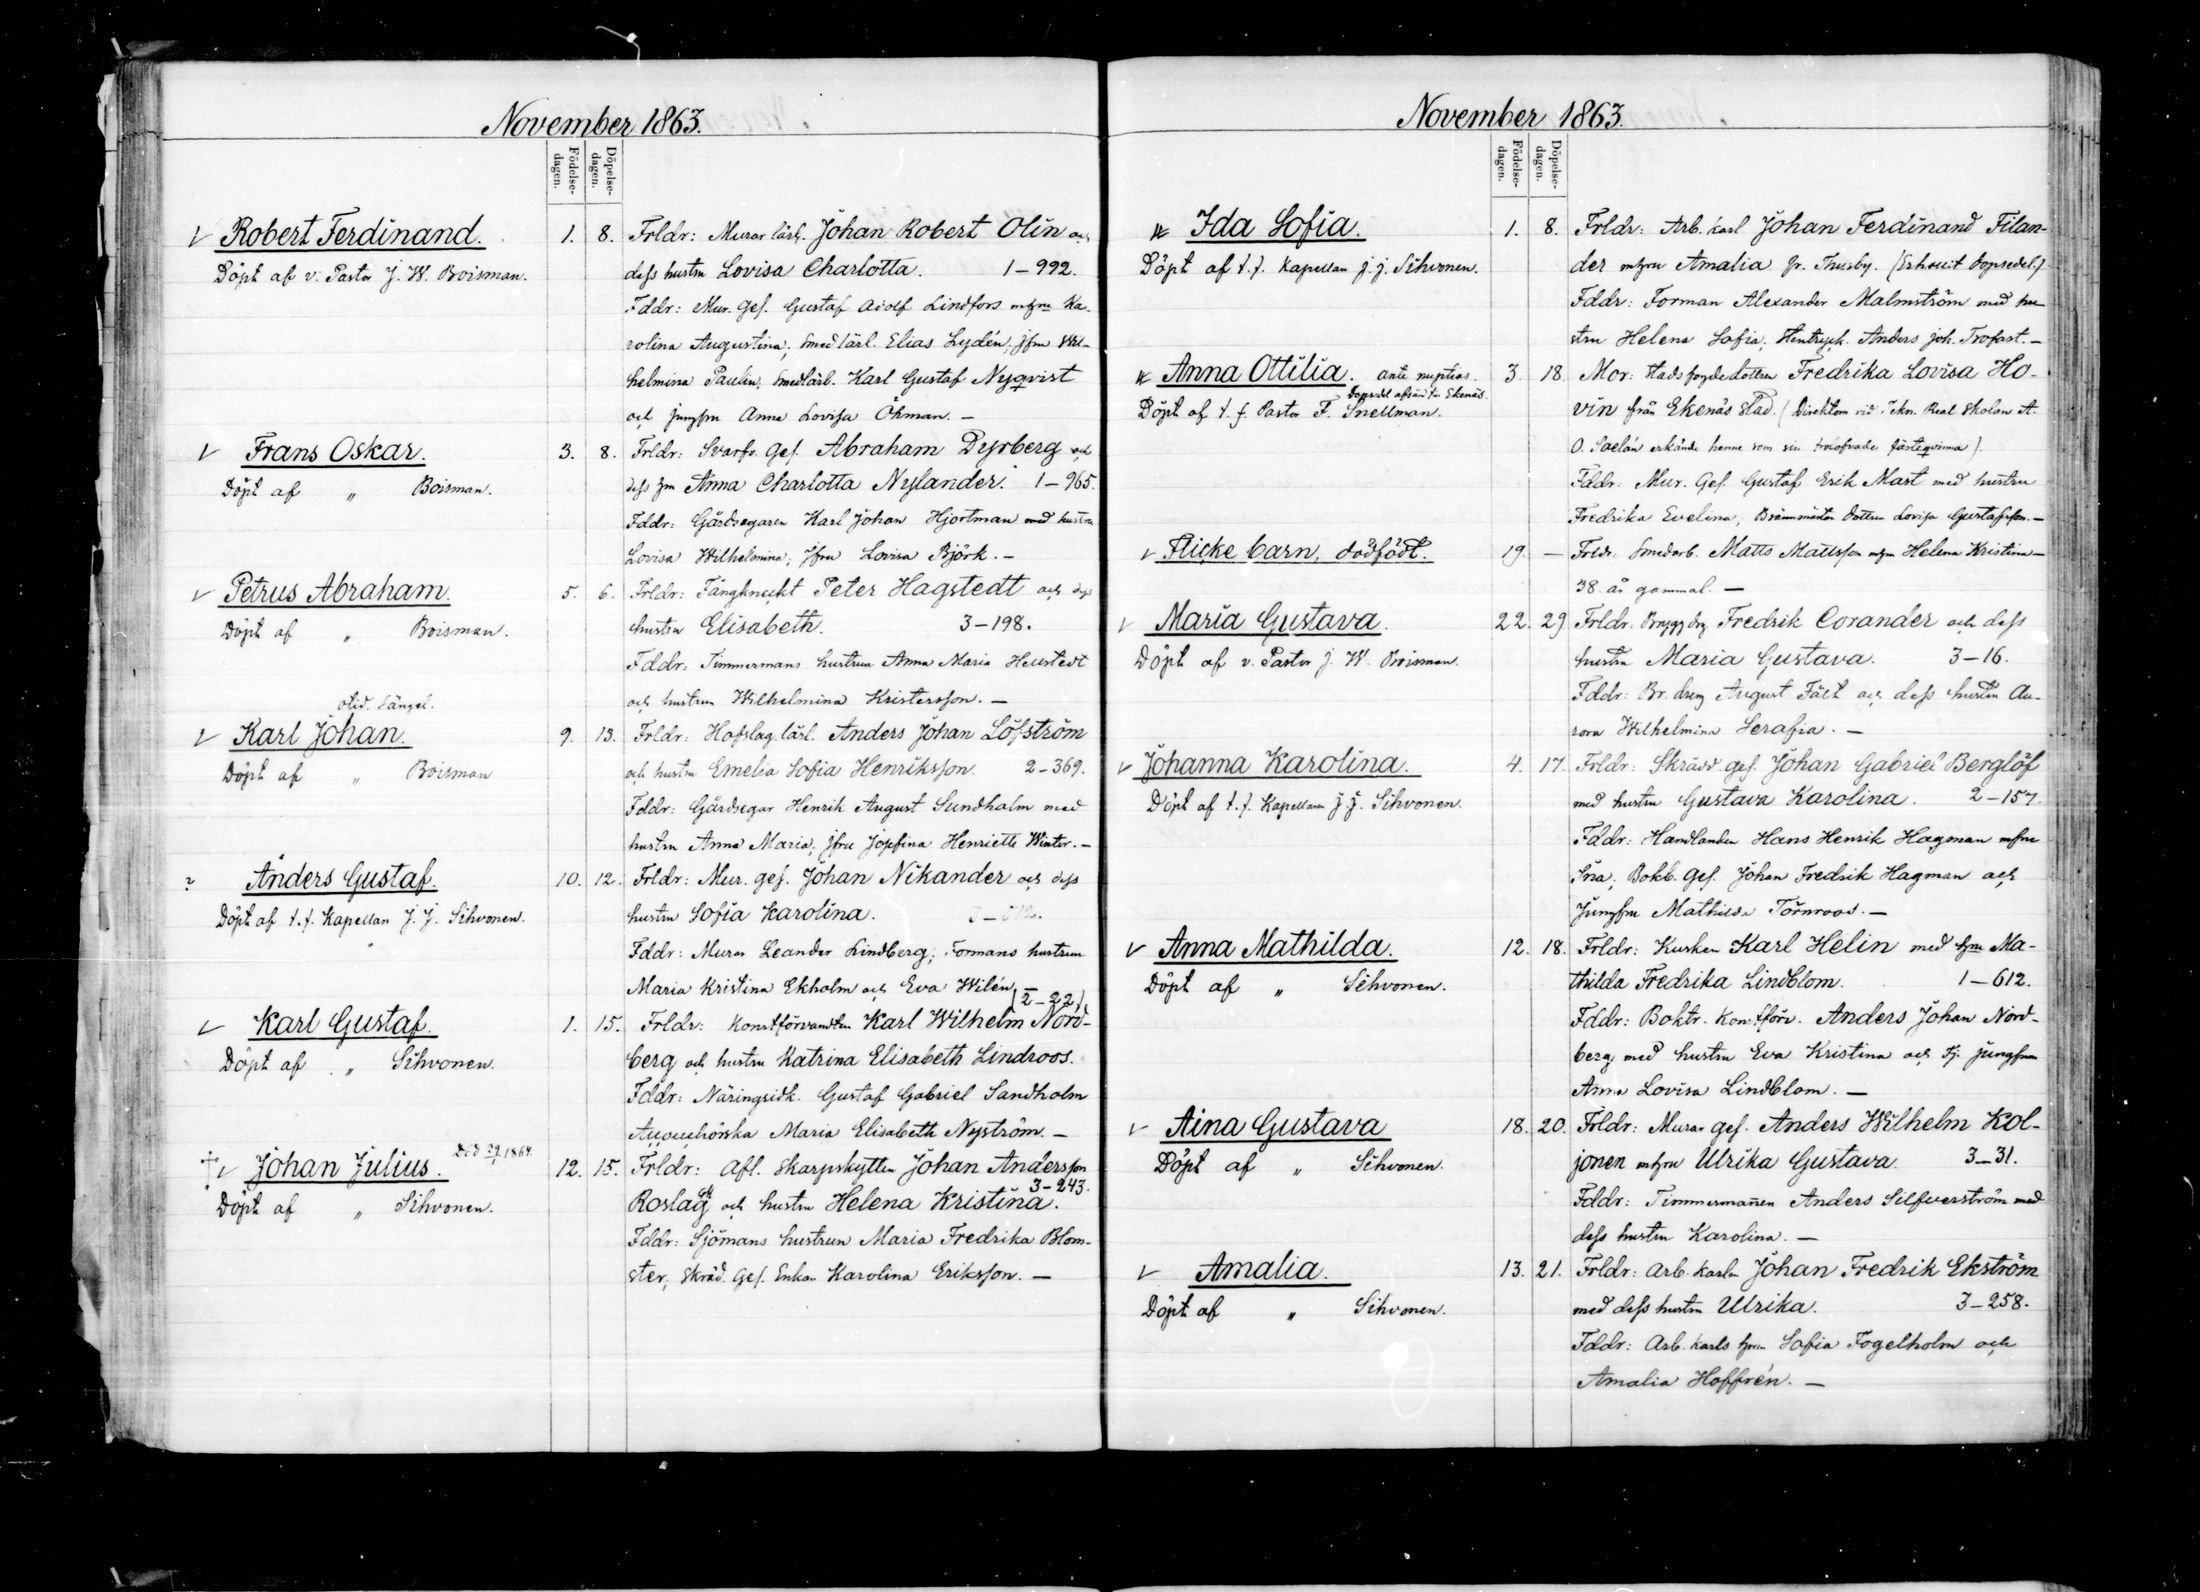 November 1863.
Födelse-
dagen.
Döpelse-
dagen.
Robert Ferdinand.
Döpt af v. Pastor J. W. Boisman.
1. 8. Frldr: Murar lärl. Johan Robert Olin och
dess hustru Lovisa Charlotta. 1–992.
Fddr: Mur. Ges. Gustaf Adolf Lindfors mhru Ka-
rolina Augustina; Smedlärl. Elias Lydén; jfru Wil-
helmina Paulin, Smedlärl. Karl Gustaf Nyqvist
och jungfru Anna Lovisa Ökman. –
Frans Oskar.
Döpt af „ Boisman.
3. 8. Frldr: Svarfv. Ges. Abraham Dyrberg och
dess hru Anna Charlotta Nylander. 1–965.
Fddr: Gårdsegaren Karl Johan Hjortman med hustru
Lovisa Wilhelmina; jfru Lovisa Björk. –
Petrus Abraham.
Döpt af „ Boisman.
5. 6. Frldr: Fångknekt Peter Hagstedt och dess
hustru Elisabeth. 3–198.
Fddr: Timmermans hustrun Anna Maria Heustedt
och hustrun Wilhelmina Kristersson. –
Karl Johan.
Döpt af „ Boisman
9. 13. Frldr: Hofslag. lärl. Anders Johan Löfström
och hustru Emelia Sofia Henriksson. 2–369.
Fddr: Gårdsegar Henrik August Sundholm med
hustru Anna Maria; jfru Josefina Henriette Winter. –
? Anders Gustaf.
Döpt af t. f. Kapellan J. J. Sihvonen.
10. 12. Frldr: Mur. ges. Johan Nikander och dess
hustru Sofia Karolina.
Fddr: Murar Leander Lindberg; Formans hustrun
Maria Kristina Ekholm och Eva Wilén. –
(2–22)
Karl Gustaf.
Döpt af „ Sihvonen.
1. 15. Frldr: Konstförvandten Karl Wilhelm Nord-
berg och hustru Katrina Elisabeth Lindroos.
Fddr: Näringsidk. Gustaf Gabriel Sandholm
Maria Elisabeth Nyström. –
† Johan Julius. Död 1864.
Döpt af „ Sihvonen.
12. 15. Frldr: Afl. Skarpskytten Johan Andersson
3–243.
Roslag och hustru Helena Kristina.
Fddr: Sjömans hustrun Maria Fredrika Blom-
ster, Skräd. Ges. Enkan Karolina Eriksson. –
November 1863.
Födelse-
dagen.
Döpelse-
dagen.
Ida Sofia.
Döpt af t. f. Kapellan J. J. Sihvonen.
1. 8. Frldr: Arb. karl Johan Ferdinand Filan-
der mhru Amalia fr. Thusby. (Erhållit dopsedel)
Fddr: Forman Alexander Malmström med hu-
stru Helena Sofia; Anders Joh. Trofast. –
Anna Ottilia. ante nuptias.
Dopsedel afsänd t. Ekenäs.
Döpt af t. f. Pastor F. Snellman.
3. 18. Mor: Stadsfogdedottren Fredrika Lovisa Ho-
vin från Ekenäs Stad. (Direktorn vid Tekn. Real Skolan A.
O. Saelan erkände henne som sin trolofvade fästeqvinna).
Fddr: Mur. Ges. Gustaf Erik Mast med hustru
Fredrika Evelina, Brännmästar dottren Lovisa Gustafsson. –
Flicke barn, dödfödt.
19. – Frldr. Smedarb. Matts Mattsson mhru Helena Kristina –
38 år gammal. –
Maria Gustava.
Döpt af v. Pastor J. W. Boisman.
22. 29 Frldr. Brygg drg Fredrik Corander och dess
hustru Maria Gustava. 3–16.
Fddr: Br. dreng August Fält och dess hustru Au-
rora Wilhelmina Serafia. –
Johanna Karolina.
Döpt af t. f. Kapellan J. J. Sihvonen.
4. 17. Frldr: Skrädd. ges. Johan Gabriel Berglöf
med hustru Gustava Karolina. 2–157.
Fddr: Handlanden Hans Henrik Hagman mhru
Ina; Bokb. Ges. Johan Fredrik Hagman och
Jungfru Mathilda Törnroos. –
Anna Mathilda.
Döpt af „ Sihvonen.
12. 18. Frldr: Kusken Karl Helin med hru Ma-
thilda Fredrika Lindblom. 1–612.
Fddr: Boktr. Konstförv. Anders Johan Nord-
berg med hustru Eva Kristina och Tj. jungfrun
Anna Lovisa Lindblom. –
Aina Gustava
Döpt af „ Sihvonen.
18. 20. Frldr: Murar ges. Anders Wilhelm Kol-
jonen mhru Ulrika Gustava. 3–31.
Fddr: Timmermannen Anders Silfverström med
dess hustru Karolina. –
Amalia.
Döpt af „ Sihvonen.
13. 21. Frldr: Arb. karln Johan Fredrik Ekström
med dess hustru Ulrika. 3–258.
Fddr: Arb. karls hrun Sofia Fogelholm och
Amalia Hoffrén. –